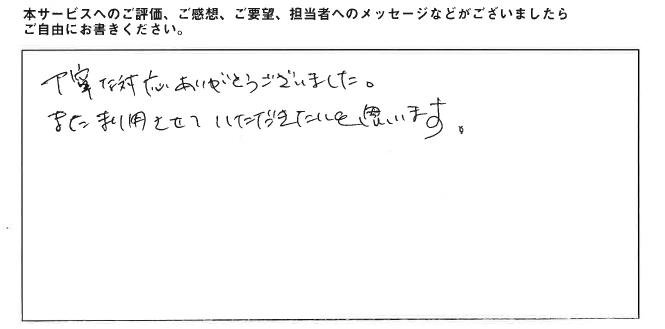 本サービスへのご評価、ご感想、ご要望、担当者へのメッセージなどがございましたら
ご自由にお書きください。
丁寧な対応ありがとうございました。
また利用させていただきたいと思います。